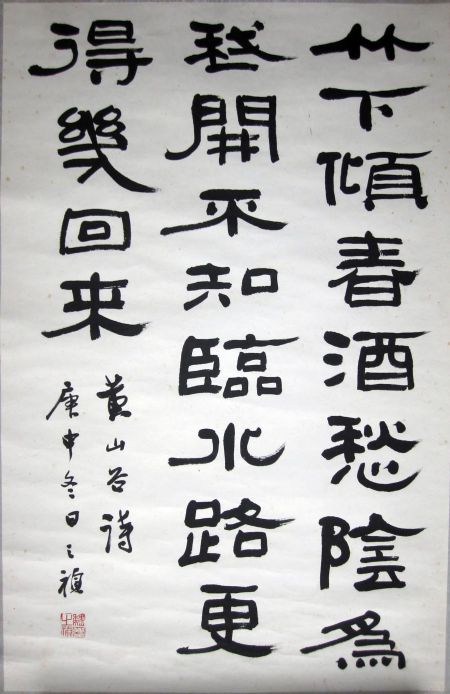 竹下傾春酒愁陰為
我開不知臨水路更
得幾回来
黄山谷詩
庚申冬日之禎